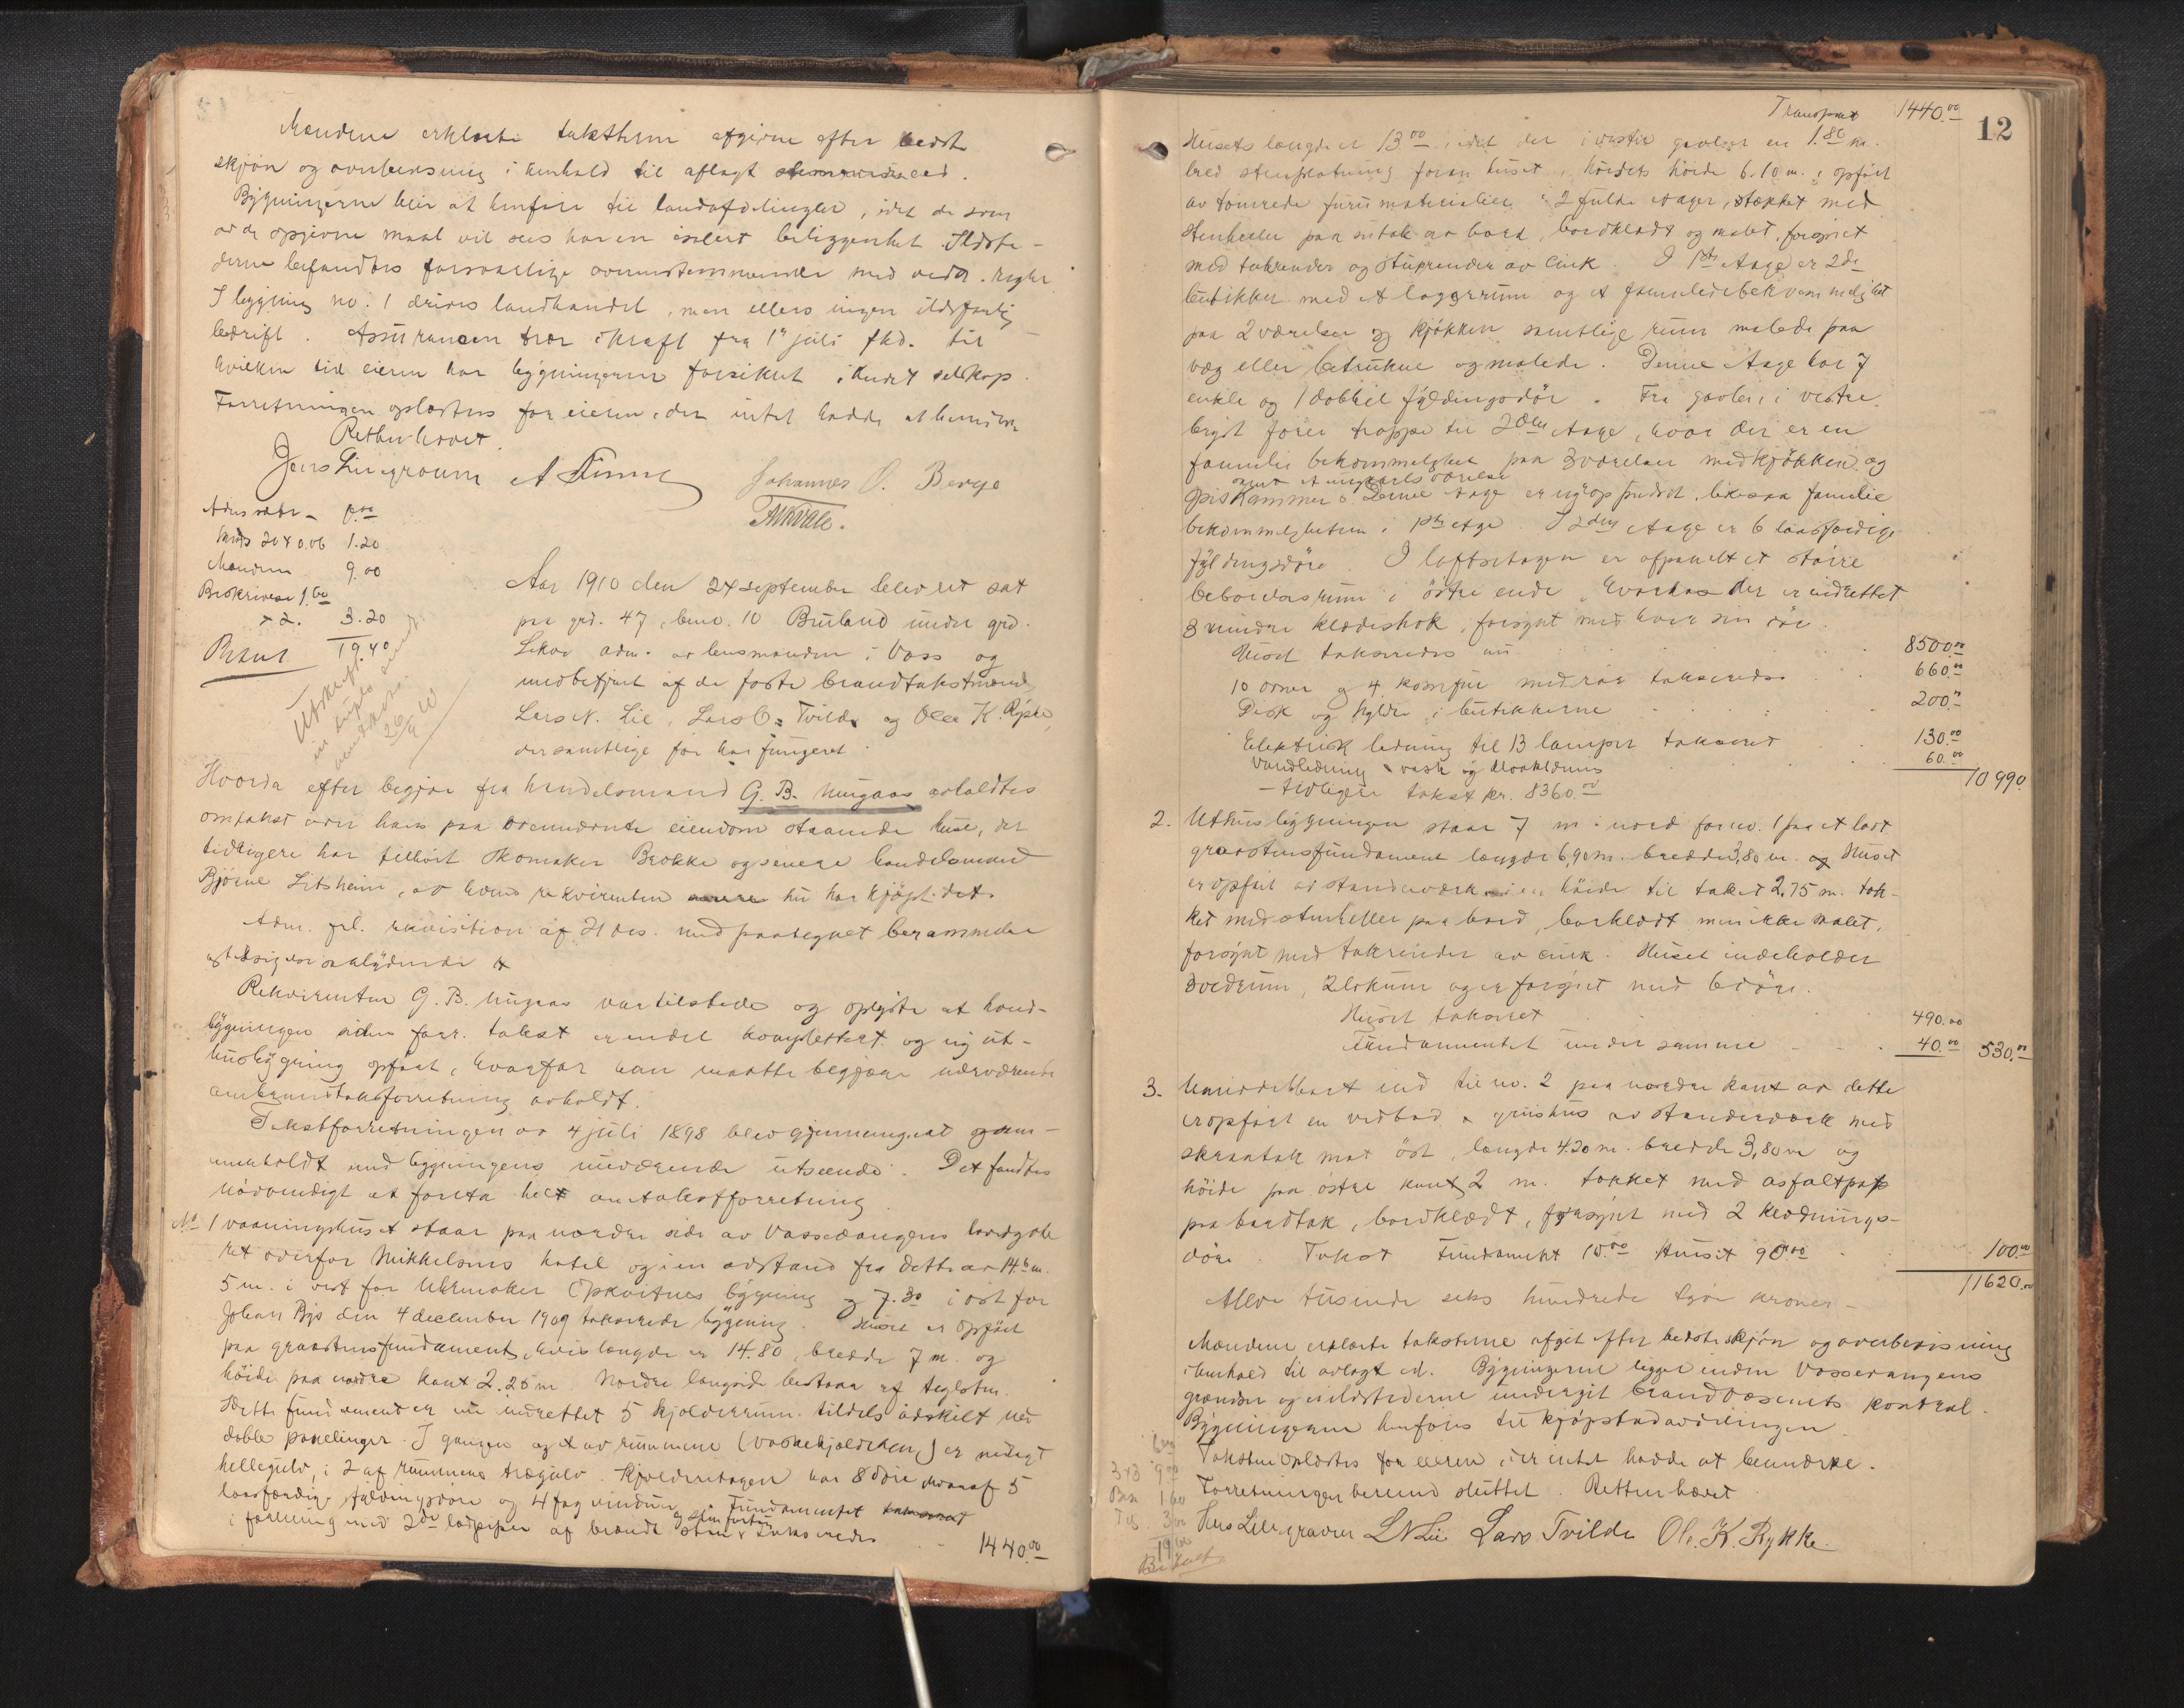 Mændene erklærte taksterne afgivne efter bedste
skjøn og overbevisning i henhold til aflagt ed.
Bygningerne blir at henføre til landafdelingen, idet de som
av de opgivne maal vil sees har en isolert beliggenhet. Ildste-
derne befandtes forsvarlige overensstemmende med vedt. regler
I bygning no. 1 drives landhandel, men ellers ingen ildsfarlig
bedrift. Assurancen træer i kraft fra 1ste juli fkd. til
hvilken tid eieren har bygningerne forsikret i andet selskap.
Forretningen oplæstes for eieren, der intet hadde at bemerke
Retten hævet.
Jens Lilegraven A Finne Johannes O. Berge
Adm
Skyds 20 x 0.06 1.20
Mændene 9.00
Beskrivelse 1.60
x 2. 3.20
19.40
Betalt
Aar 1910 den 24 september blev ret sat
paa grd. 47, bnr. 10 Bruland under grd.
Lekve adm. av lensmanden i Voss og
medbetjent af de faste brandtakstmænd
Lars N. Lie, Lars O. Tvilde og Ole K. Rykke,
der samtlige før har fungeret.
Hvorda efter begjær fra handelsmand G. B. Ringaas avholdtes
omtakst over hans paa ovennævnte eiendom staaende huse, der
tidligere har tilhørt skomaker Brokke og senere handelsmand
Bjørne Litsheim, av hvem rekvirenten nu har kjøpt det.
Adm. frl. rekvisition af 21 ds. med paategnet berammelse
Rekvirenten G. B. Ringaas var tilstede og oplyste at hoved-
bygningen siden forr. takst er endel komplettert og ny ut-
husbygning opført, hvorfor han maatte begjære nærværende
ombrandtakstforretning avholdt.
Takstforretningen av 4 juli 1898 blev gjennemgaat og sam-
menholdt med bygningens nuværende utseende. Det fandtes
nødvendigt at foreta helt omtakstforretning
No 1 vaaningshuset staar paa nordre side av Vossevangens landgate
ret overfor Mikkelsens hotel og i en avstand fra dette av 14 m.
5 m. i vest for Uhrmaker Opkvitnes bygning og 7.30 i øst for
Johan Bys den 4 december 1909 takserede bygning. Huset er opført
paa graastensfundament, hvis længde er 14.80, bredde 7 m. og
høide paa nordre kant 2.25 m. Nordre langside bestaar af teglsten.
I dette fundament er nu indrettet 5 kjælderrum tildels adskilt ved
doble panelinger. I gangen og et av rummene (vaskekjælderen) er nedlagt
hellegulv, i 2 af rummene trægulv. Kjælderetagen har 8 døre hvoraf 5
laasfærdige fyldingsdøre og 4 fag vinduer Fundamentet
i forening med 2de ladpiper af brændt sten takseredes 1440.00
12
Transport 1440.00
Husets længde er 13.00 idet der i vestre gavl er en 1.80 m.
bred stenplatning foran huset, husets høide 6.10 m. opført
av tømrede furumaterialier i 2 fulde etager, tækket med
stenheller paa sutak av bord, bordklædt og malet, forsynet
med takrender og stuprender av zink. I 1ste etage er 2de
butikker med et lagerrum og et familiebekvemmelighet
paa 2 værelser og kjøkken samtlige rum malede paa
væg eller betrukne og malede. Denne etage har 7
enkle og 1 dobbel fyldingsdør. Fra gavlen i vestre
bryst fører trappe til 2den etage, hvor der er en
familie bekvemmelighet paa 3 værelser med kjøkken og
spiskammer samt et ungkarlsværelse. Denne etage er nyopfudset, likesaa familie
bekvemmeligheten i 1ste etage I 2den etage er 6 laasfærdige
fyldingsdøre. I loftsetagen er afpanelt et større
beboelsesrum i østre ende, hvorhos der er indrettet
3 mindre klædeskot, forsynt med hver sin dør.
Huset takseredes nu 8500.00
10 ovner og 4 komfur med rør takseredes 660.00
Disk og hylder i butikkerne 200.00
Elektrisk ledning til 13 lamper takseret 130.00
Vandledning, vask og kloakledning 60.00
10990
– tidligere takst kr. 8360.00
2. Uthusbygningen staar 7 m. nord for no. 1 paa et lavt
graastensfundament længde 6,90 m. bredde 3,80 m. Huset
er opført av standerværk i en høide til taket 2,75 m. tæk-
ket med stenheller paa bord, bordklædt men ikke malet,
forsynt med takrender av zink. Huset indeholder
3 vedrum, 2 lokum og er forsynet med 6 døre.
Huset takseret 490.00
Fundamentet under samme 40.00 530.00
3. Umiddelbart ind til no. 2 paa nordre kant av dette
er opført en vedbod & grishus av standerværk med
skraatak mot øst, længde 4.20 m. bredde 3,80 m og
høide paa østre kant 2 m. tækket med asfaltpap
paa bordtak, bordklædt, forsynt med 2 klædnings-
døre. Takst Fundamentet 10.00 Huset 90.00 100.00
11620.00
Elleve tusende seks hundrede tyve kroner –
Mændene erklærte taksterne afgit efter bedste skjøn og overbevisning
i henhold til avlagt ed. Bygningerne ligger inden Vossevangens
grænser og er ildstederne undergit brandvæsenets kontrol.
Bygningerne henføres til kjøpstadavdelingen.
Taksten oplæstes for eieren, der intet hadde at bemærke.
Forretningen dermed sluttet. Retten hævet
3x3 9.00
Besk 1.60
19.60
Betalt
Jens Lilegraven L N Lie Lars Tvilde Ole K. Rykke